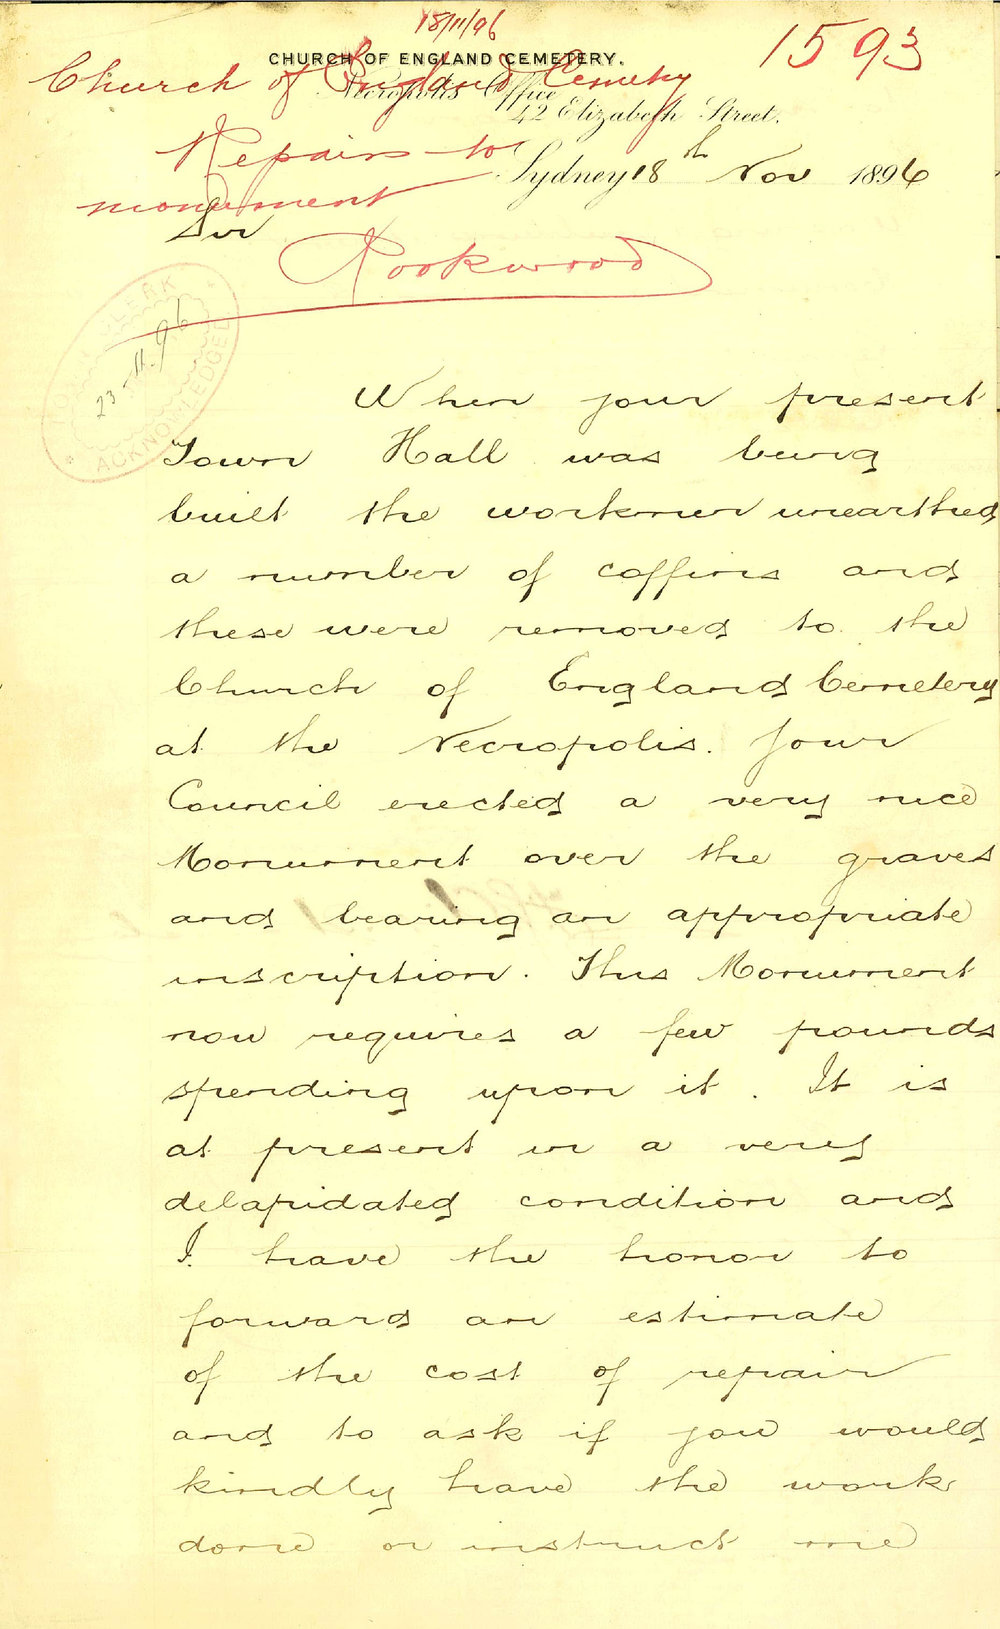 18/11/96
1593
CHURCH OF ENGLAND CEMETERY.
Church of England Cemetery
Necropolis Office
42 Elizabeth Street.
Repairs to
monument
Sydney 18th Nov 1896
Sir
Rookwood
TOWN CLERK
23-11.96
ACKNOWLEDGED
When your present
Town Hall was being
built the workmen unearthed
a number of coffins and
these were removed to the
Church of England Cemetery
at the Necropolis. Your
Council erected a very nice
Monument over the graves
and bearing an appropriate
inscription. This Monument
now requires a few pounds
spending upon it. It is
at present in a very
delapidated condition and
I have the honor to
forward an estimate
of the cost of repair
and to ask if you would
kindly have the work
done or instruct me